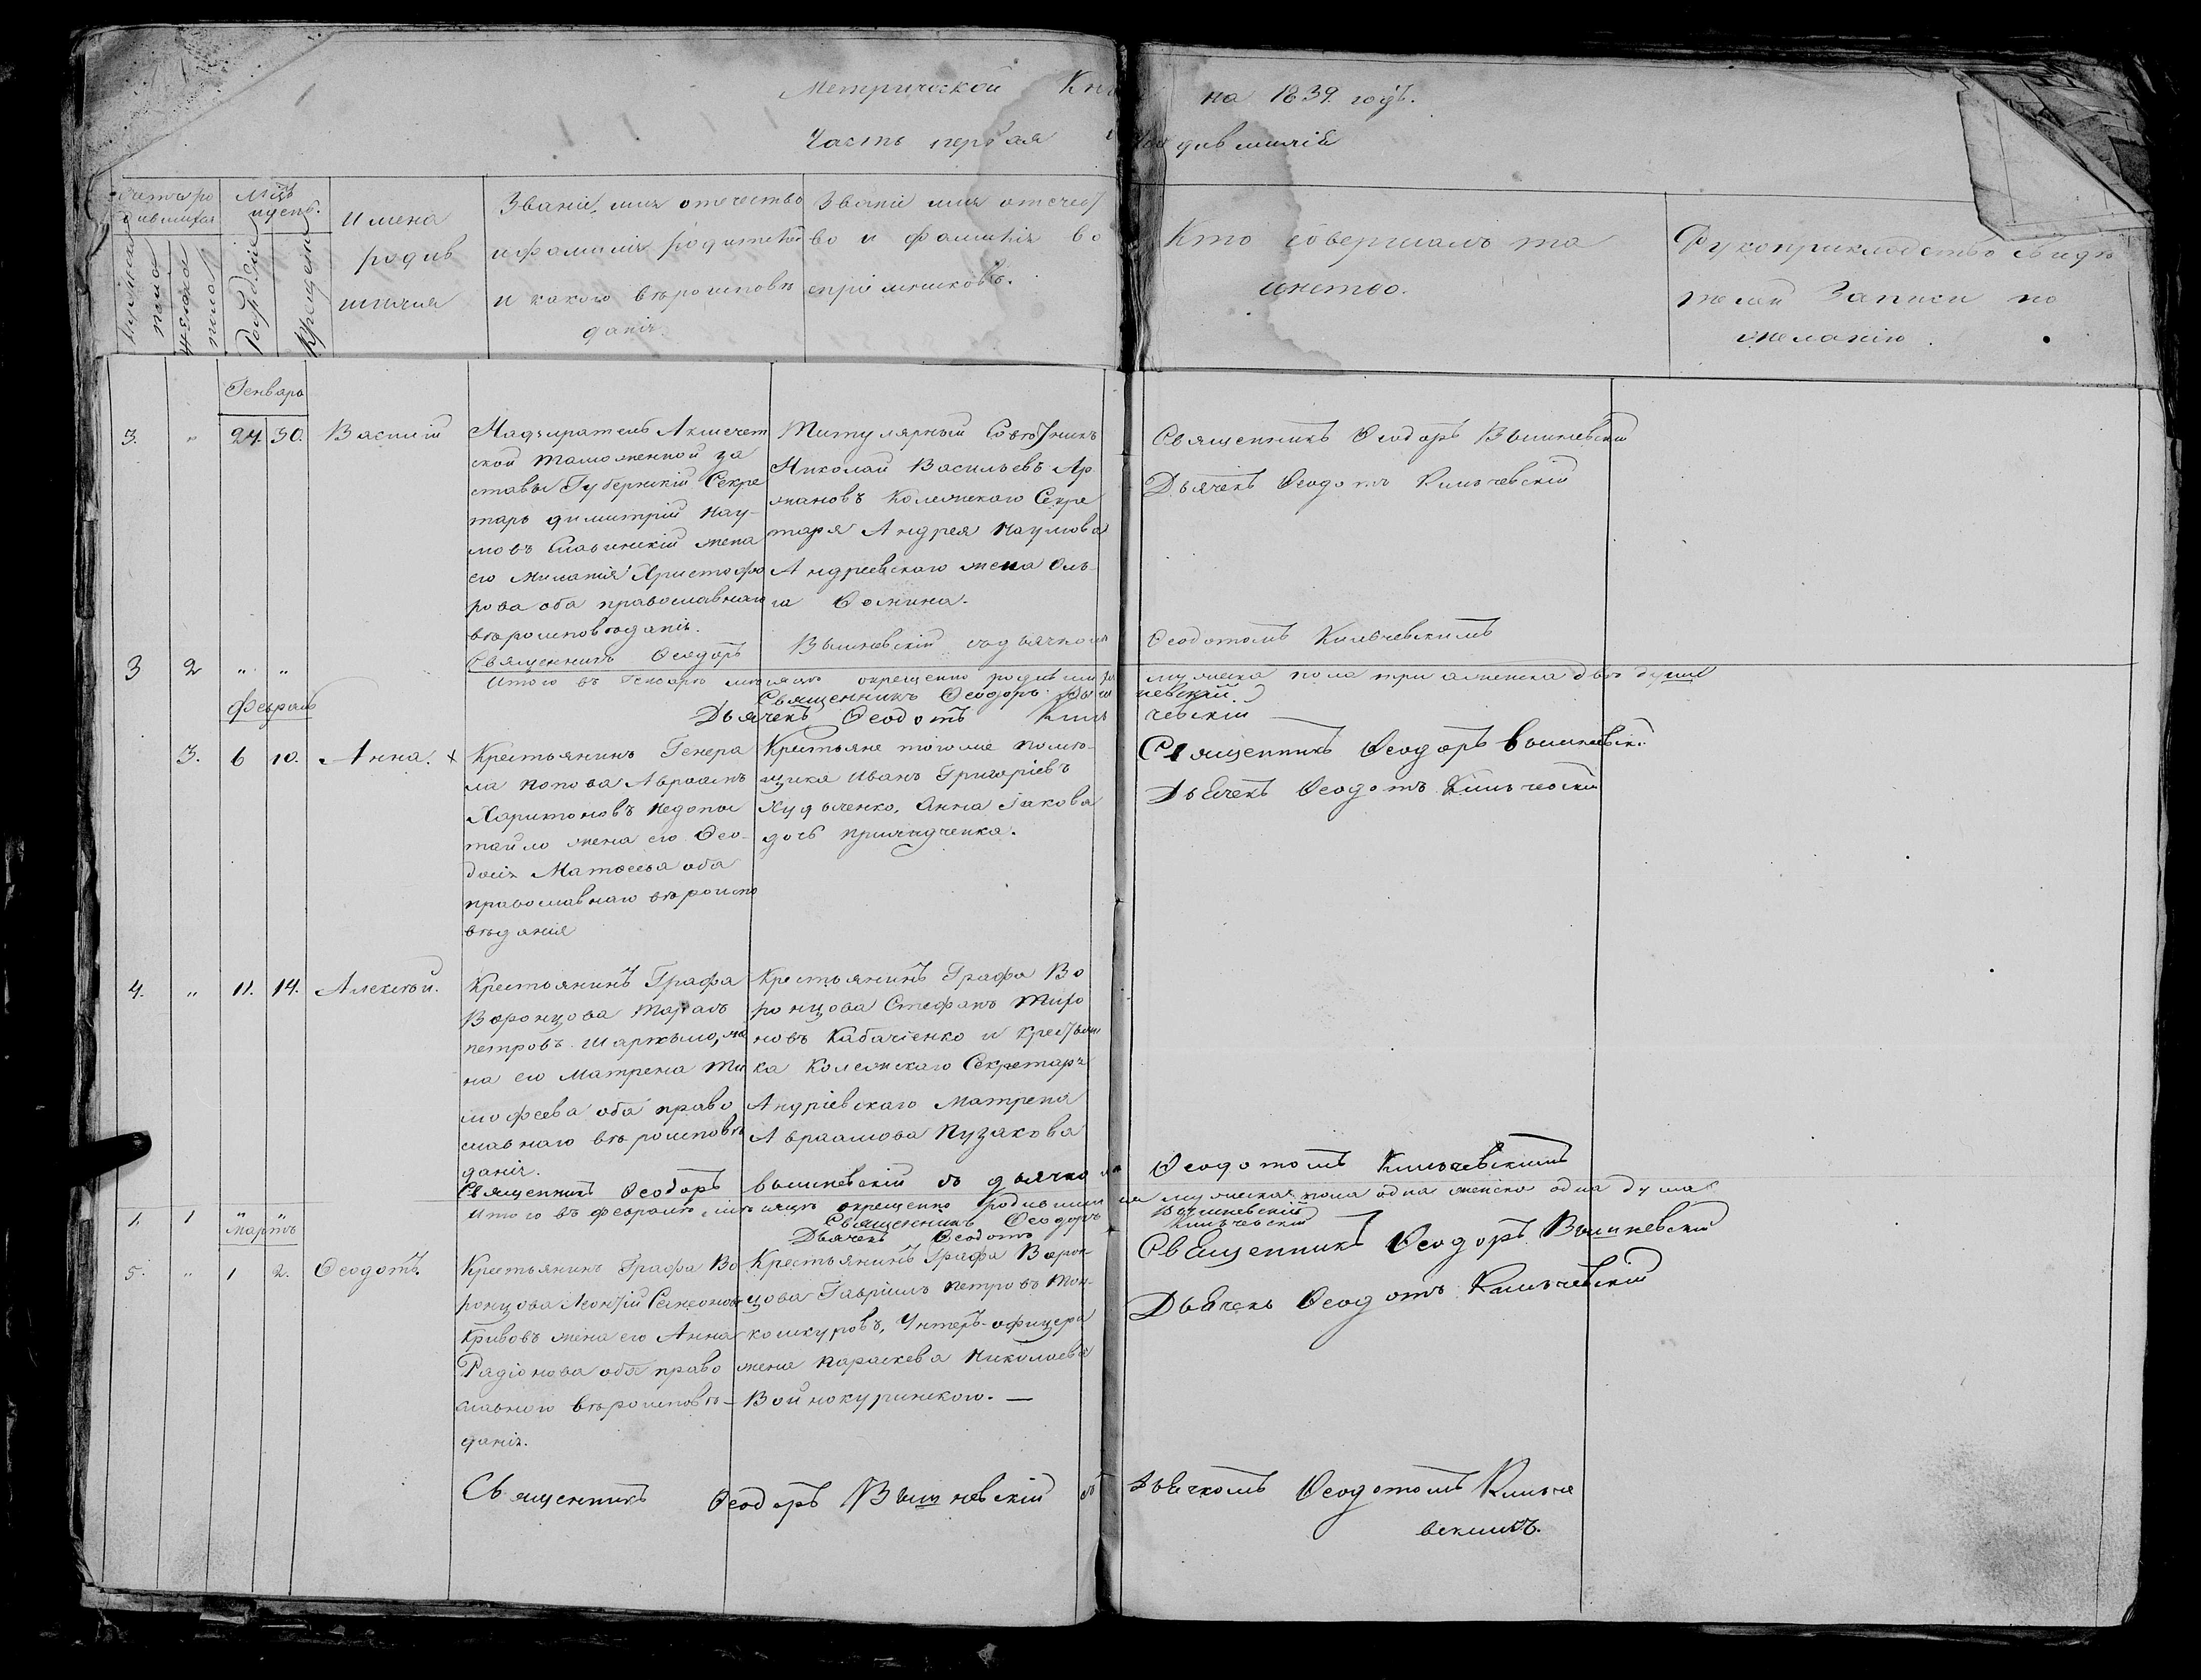 Метрической Кни на 1839 годъ.
Часть первая о родившихся
Мцъ и день.
Имена родив шихся
Званіе, имя отечество и фамилія родителей и какого вѣроисповѣ данія
Званіе имя отечест во и фамилія воспріемниковъ.
Кто совершалъ та инство.
Рукоприкладство свидѣ телей записи по желанію.
мужеска пола
женска пола
Рожденія
Крещенія
Генварь
3. " 24. 30. Василій
Надзиратель Акмечет
ской таможенной за
ставы Губернскій Секре
тарь Димитрій Нау-
мовъ Славинскій жена
его Мілатія Христофо
рова оба православнаго
вѣроисповѣданія.
Титулярный Совѣтникъ
Николай Васильевъ Ар
мановъ Колежскаго Секре
таря Андрея Наумова
Андреевскаго жена Оль-
га Фомина.
Священникъ Ѳеодоръ Вышневскій
Дьячекъ Ѳеодотъ Кильчевскій
Священникъ Ѳеодоръ Вышневскій съ дьячкомъ Ѳеодотомъ Кильчевскимъ
3 2 " "
Итого въ Генварѣ мѣсяцѣ окрещенно родившихся мужеска пола три а женска двѣ души
Священникъ Ѳеодоръ Вышневскій
Дьячекъ Ѳеодотъ Кильчевскій
Февраль
3. 6 10. Анна. х
Крестьянинъ Генера
ла Попова Авраамъ
Харитоновъ Недопы
тайло жена его Ѳео-
досія Матѳеева оба
православнаго вѣроиспо
вѣданія
Крестьяне тогоже помѣ-
щика Иванъ Григоріевъ
Худыченко, Анна Іакова
дочь
Священникъ Ѳеодоръ Вышневскій
Дьячекъ Ѳеодотъ Кильчевскій
4. " 11. 14. Алексѣй.
Крестьянинъ Графа
Воронцова Тарасъ
Петровъ, же
на его Матрена Ти
мофеева оба право
славнаго вѣроисповѣ
данія.
Крестьянинъ Графа Во
ронцова Стефанъ Миро
новъ Кабаченко и крестьян
ка Колежскаго Секретаря
Андріевскаго Матрена
Авраамова Пузакова
Священникъ Ѳеодоръ Вышневскій съ дьячкомъ Ѳеодотомъ Кильчевскимъ
1. 1 " "
Итого въ февралѣ мѣсяцѣ окрещенно родившихся мужеска пола одна женска одна душа
Священникъ Ѳеодоръ Вышневскій
Дьячекъ Ѳеодотъ Кильчевскій
Мартъ
5. " 1 2. Ѳеодотъ.
Крестьянинъ Графа Во
ронцова Леонтій Семеоновъ
Кривовъ жена его Анна
Радіонова оба право
славнаго вѣроисповѣ-
данія.
Крестьянинъ Графа Ворон-
цова Гавріилъ Петровъ Тон-
кошкуровъ, Унтеръ-офицера
жена Параскева Николаева
Войнокуринского. —
Священникъ Ѳеодоръ Вышневскій
Дьячекъ Ѳеодотъ Кильчевскій
Священникъ Ѳеодоръ Вышневскій съ Дьячкомъ Ѳеодотомъ Кильче
вскимъ.